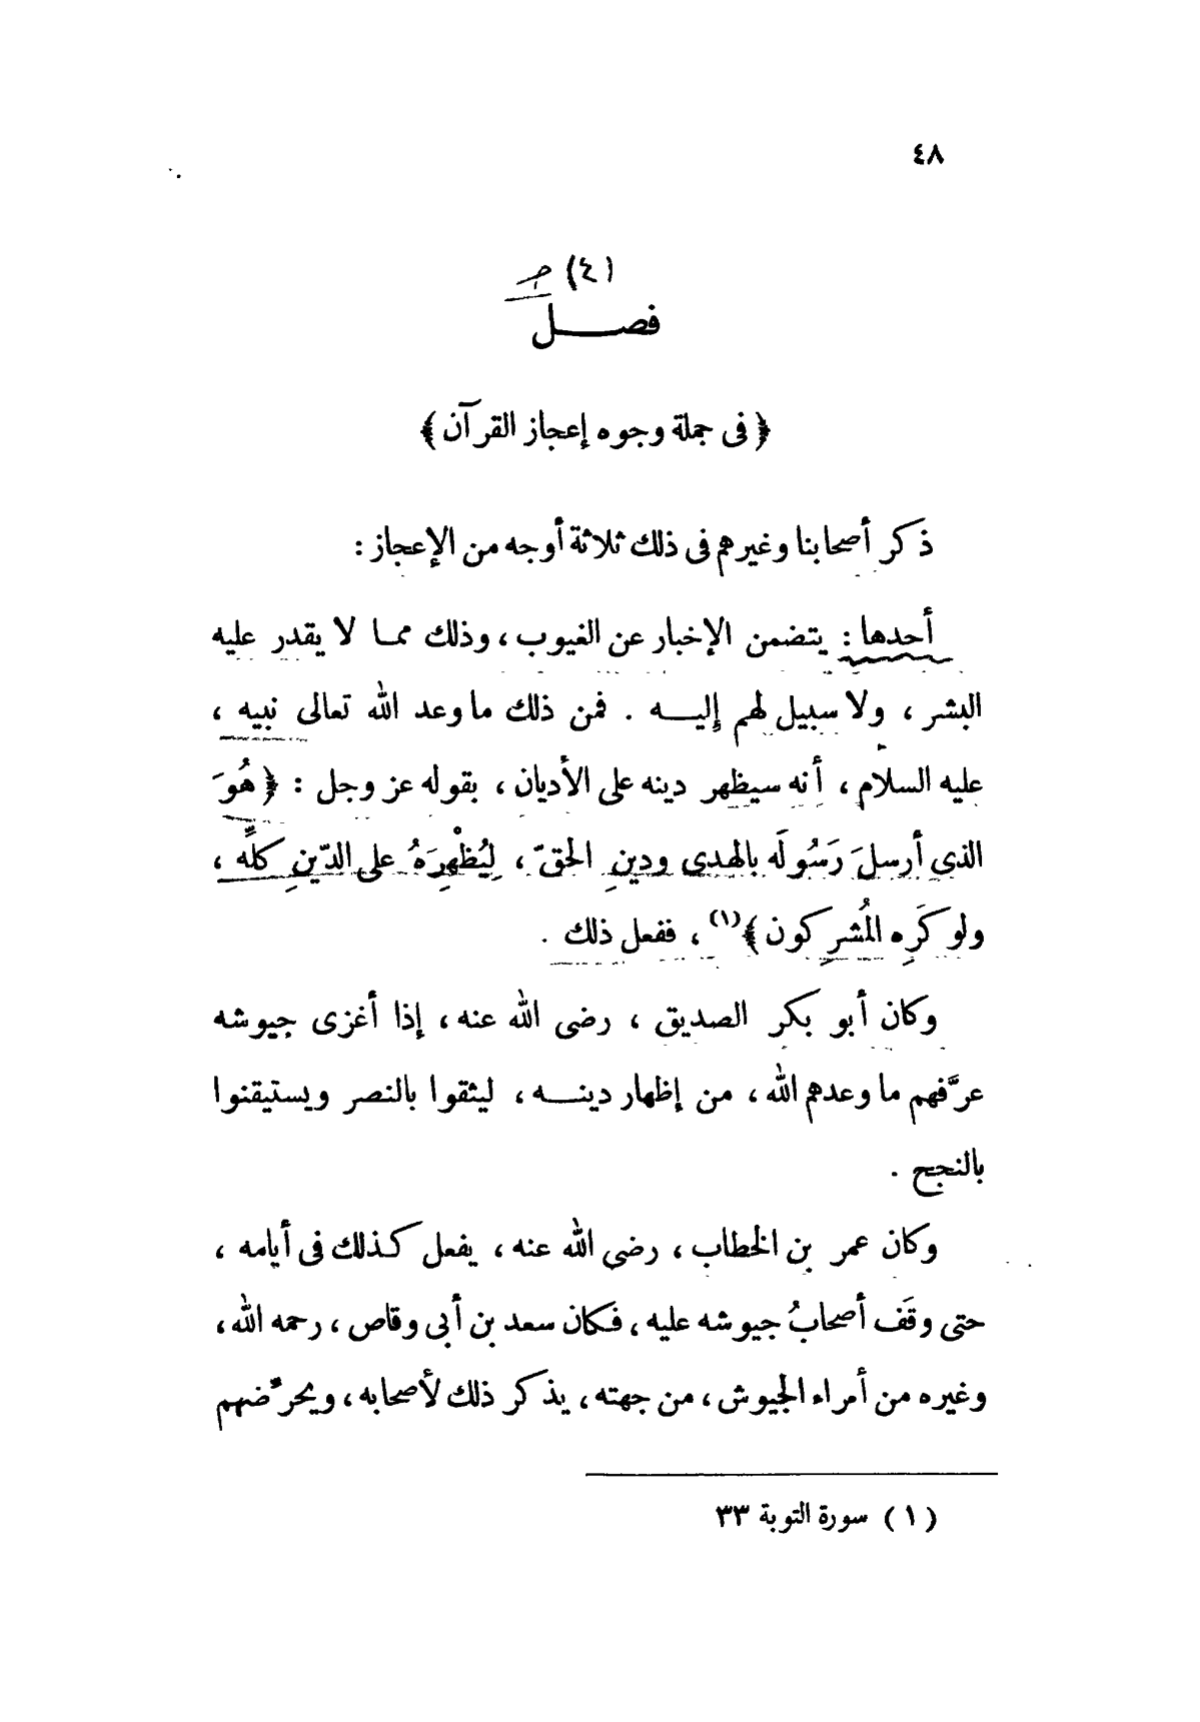 ٤٨
(٤)
فصل
﴿ فى جملة وجوه إعجاز القرآن ﴾
ذكر أصحابنا وغيرهم فى ذلك ثلاثة أوجه من الإعجاز :
أحدها : يتضمن الإخبار عن الغيوب ، وذلك مما لا يقدر عليه
البشر ، ولا سبيل لهم إليه . فمن ذلك ما وعد الله تعالى نبيه ،
عليه السلام ، أنه سيظهر دينه على الأديان ، بقوله عز وجل : ﴿ هُوَ
الذى أرسلَ رَسُولَه بالهدى ودينِ الحقّ ، لِيُظْهِرَهُ على الدّينِ كلِّه ،
ولو كَرِه المُشرِكون ﴾(١) ، ففعل ذلك .
وكان أبو بكر الصديق ، رضى الله عنه ، إذا أغزى جيوشه
عرَّفهم ما وعدهم الله ، من إظهار دينه ، ليثقوا بالنصر ويستيقنوا
بالنجح .
وكان عمر بن الخطاب ، رضى الله عنه ، يفعل كذلك فى أيامه ،
حتى وقَف أصحابُ جيوشه عليه ، فكان سعد بن أبى وقاص ، رحمه الله ،
وغيره من أمراء الجيوش ، من جهته ، يذكر ذلك لأصحابه ، ويحرّضهم
( ١ ) سورة التوبة ٣٣